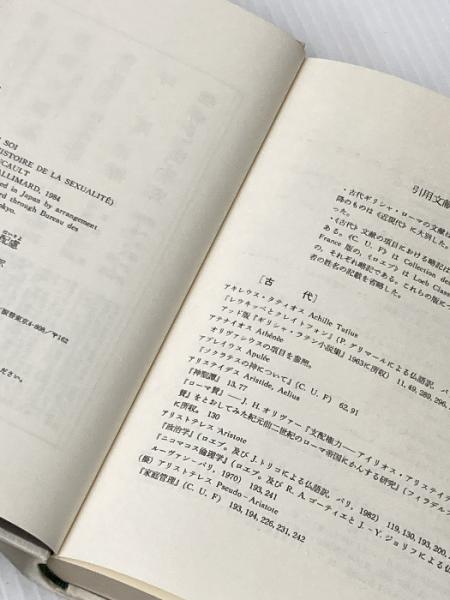 SOI
HISTOIRE DE LA SEXUALITÉ)
UCAULT
ALLIMARD, 1984
ed in Japan by arrangement
rd through Bureau des
okyo.
引用文献
・古代ギリシャ・ローマの文献
降のものは《近現代》に大別した。
た。
・《古代》文献の項目における略記は
ある。《C. U. F》は Collection des
France 版の、《ロエブ》は Loeb Clas
の、それぞれ略記である。これらの版に
者の姓名の記載を省略した。
［古 代］
アキレウス・タティオス Achille Tatius
『レウキッペとクレイトフォン』(P. グリマールによる仏語訳、パリ
アッド版『ギリシャ・ラテン小説集』1963に所収) 11, 49, 289, 296,
アテナイオス Athénée
オリヴァシウスの項目を参照。
アプレイウス Apulée
『ソクラテスの神について』(C. U. F) 62, 91
アリスティデス Aristide, Aelius
『神聖譚』 13, 72
『ローマ賛』——J. H. オリヴァー『支配権力——アイリオス・アリスティデ
賛』をとおしてみた紀元前二世紀のローマ帝国にかんする研究』(フィラデルフ
に所収。 130
アリストテレス Aristote
『政治学』(ロエブ。及び J. トリコによる仏語訳、パリ、1982) 119, 130, 193, 200,
『ニコマコス倫理学』(ロエブ。及び R. A. ゴーティエと J. -Y. ジョリフによる仏
ルーヴァン-パリ、1970) 193, 241
(擬) アリストテレス Pseudo-Aristote
『家庭管理』(C. U. F) 193, 194, 226, 231, 242
配盛
訳
ださい。